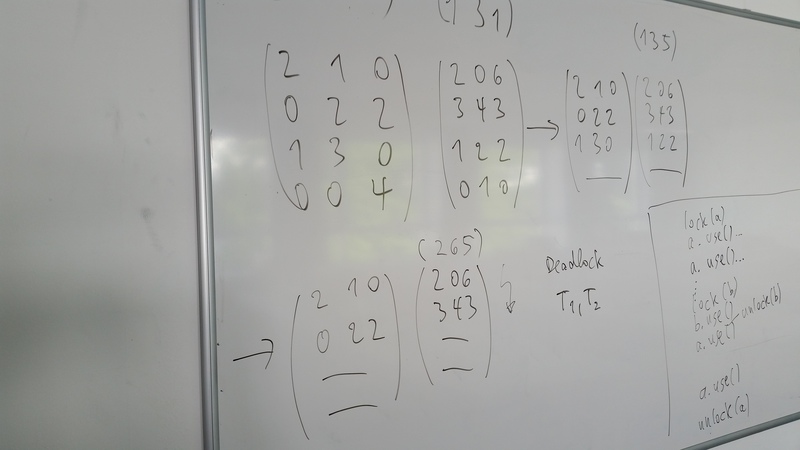 (131)
2 1 0
0 2 2
1 3 0
0 0 4
2 0 6
3 4 3
1 2 2
0 1 0
→
(135)
2 1 0
0 2 2
1 3 0
—
2 0 6
3 4 3
1 2 2
—
→
2 1 0
0 2 2
—
—
(265)
2 0 6
3 4 3
—
—
Deadlock
T1, T2
lock(a)
a.use()...
a.use()...
lock(b)
b.use()
unlock(b)
a.use()
a.use()
unlock(a)